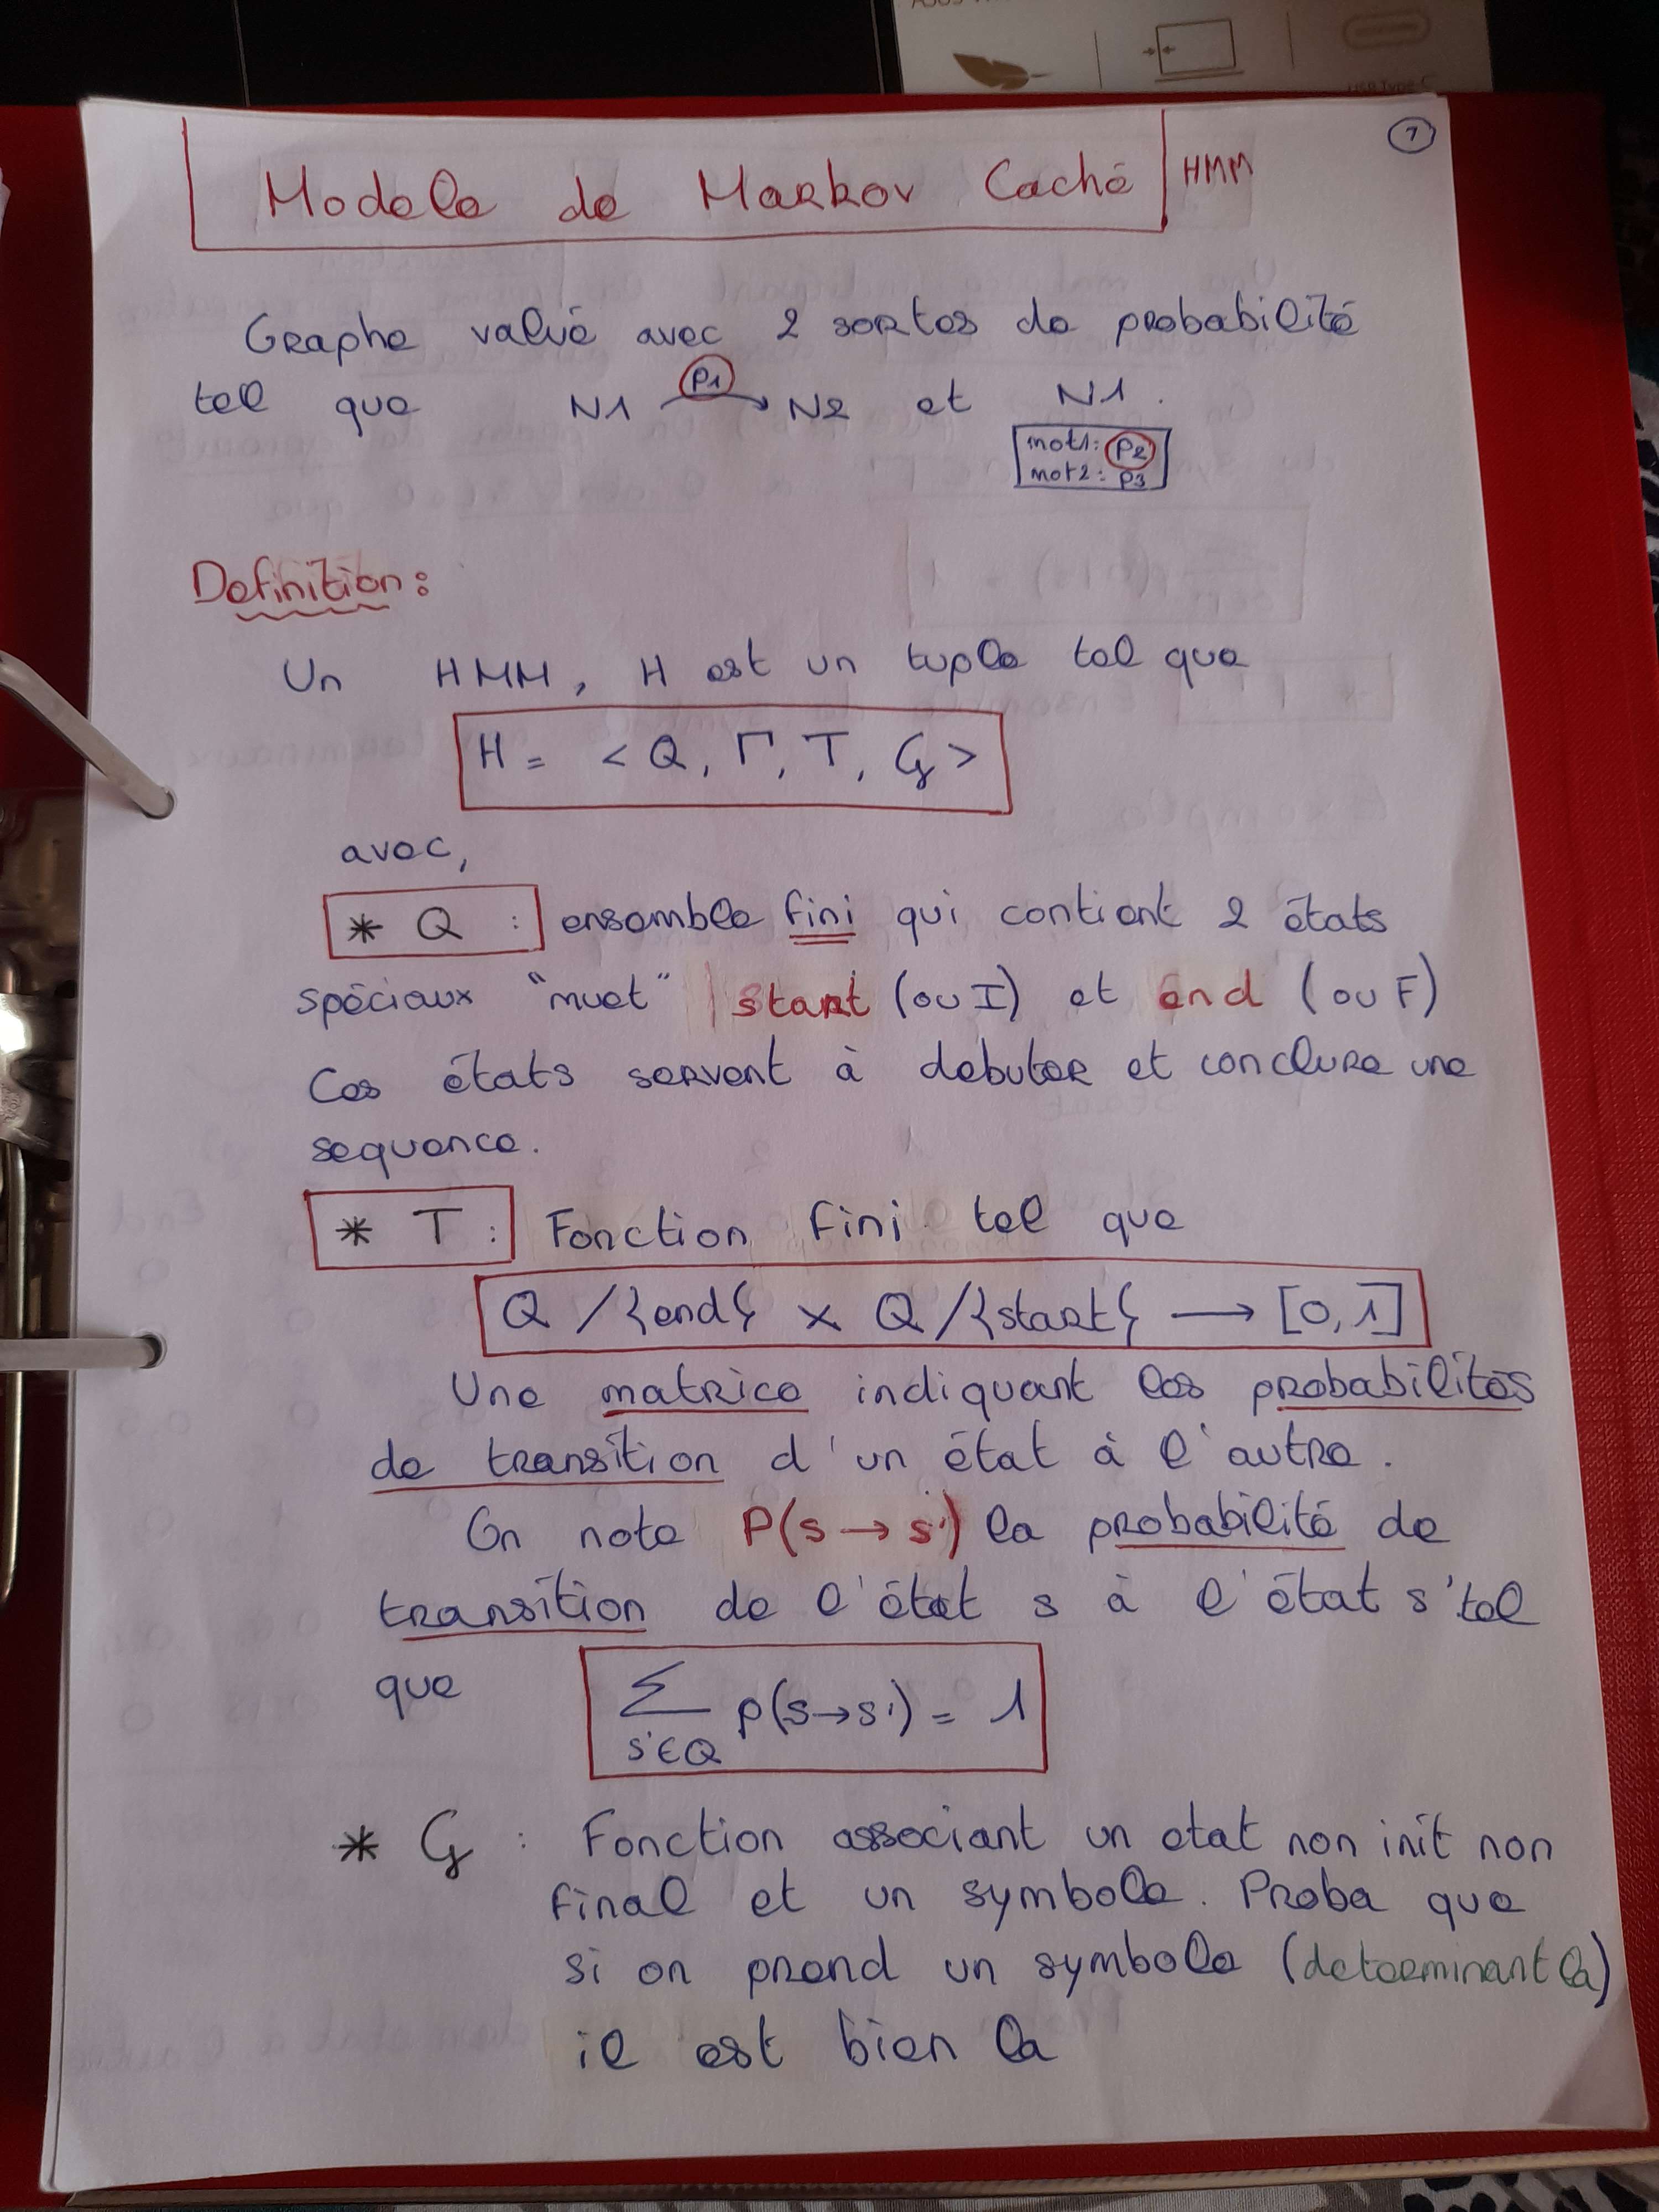 Modele de Markov Caché HMM
7
Graphe valué avec 2 sortes de probabilité
tel que N1 P1 → N2 et N1.
mot1: P2
mot2: P3
Definition:
Un HMM, H est un tuple tel que
H = < Q, Γ, T, G >
avec,
* Q : ensemble fini qui contient 2 états
spéciaux "muet" | start (ou I) et end (ou F)
Ces états servent à debuter et conclure une
sequence.
* T : Fonction fini tel que
Q /{end} x Q /{start} → [0,1]
Une matrice indiquant les probabilités
de transition d'un état à l'autre.
On note P(s → s') la probabilité de
transition de l'état s à l'état s' tel
que ∑ s'∈Q P(s→s') = 1
* G : Fonction associant un etat non init non
final et un symbole. Proba que
si on prend un symbole (determinant la)
il est bien la